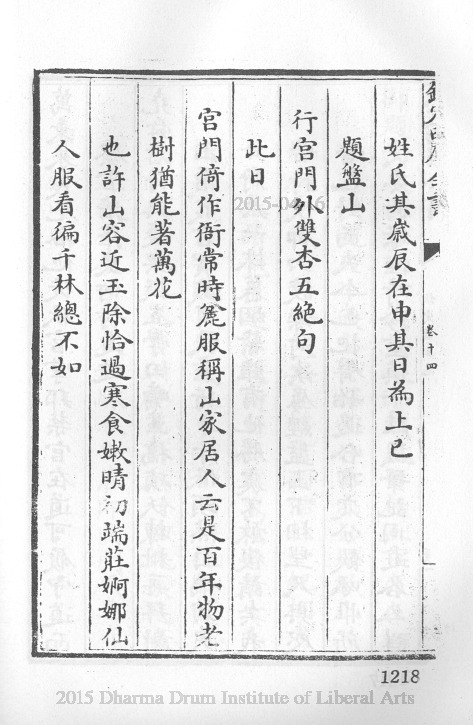 欽定四庫全書
卷十四
姓氏其歳辰在申其日為上巳
題盤山
行宫門外雙杏五絶句
此日
宫門倚作衙常時麄服稱山家居人云是百年物老
樹猶能著萬花
也許山容近玉除恰過寒食嫩晴初端莊婀娜仙
人服看徧千林總不如
1218
2015 Dharma Drum Institute of Liberal Arts